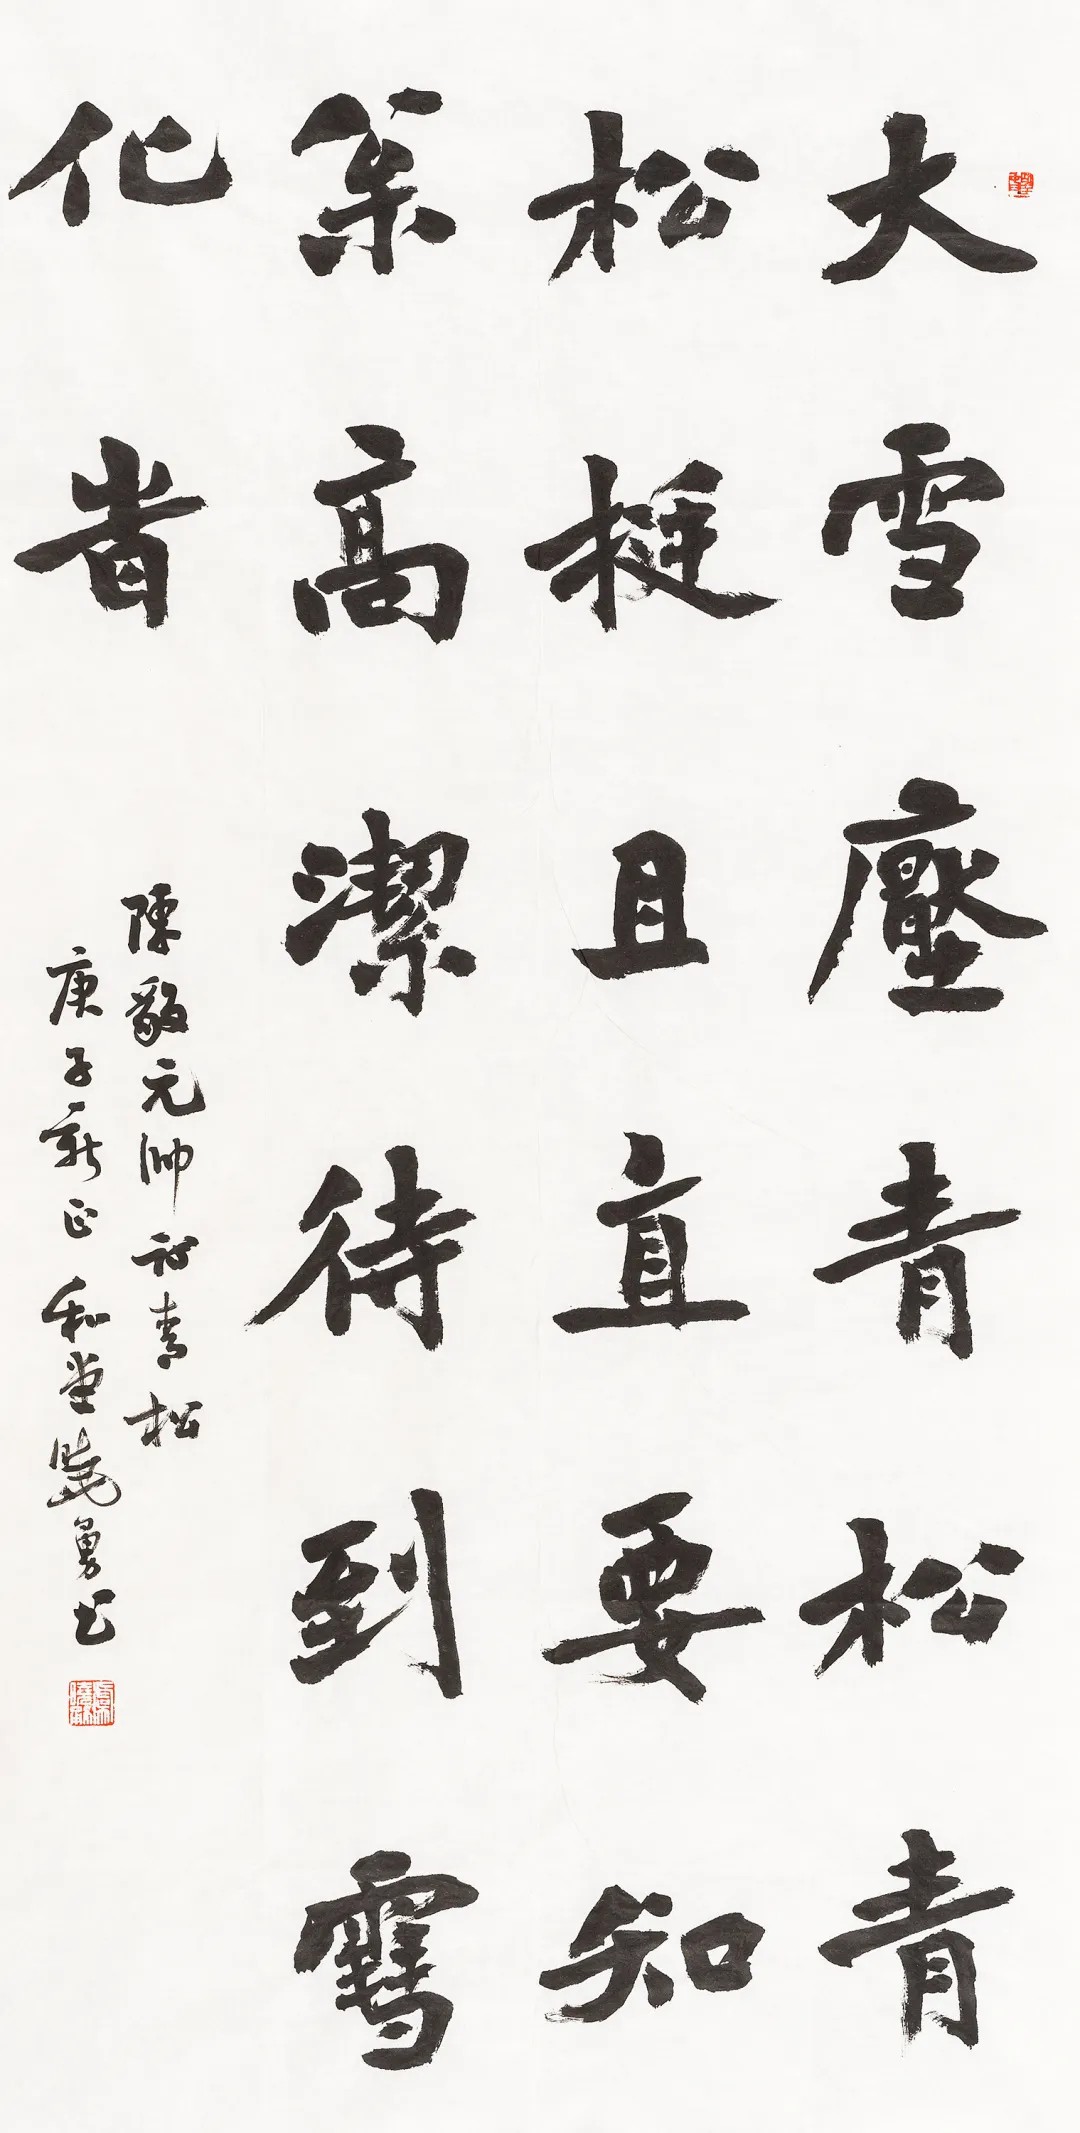 大雪壓青松青
松挺且直要知
枀高潔待到䨮
化旹
陳毅元帥詩青松
庚子新正和堂曉勇书